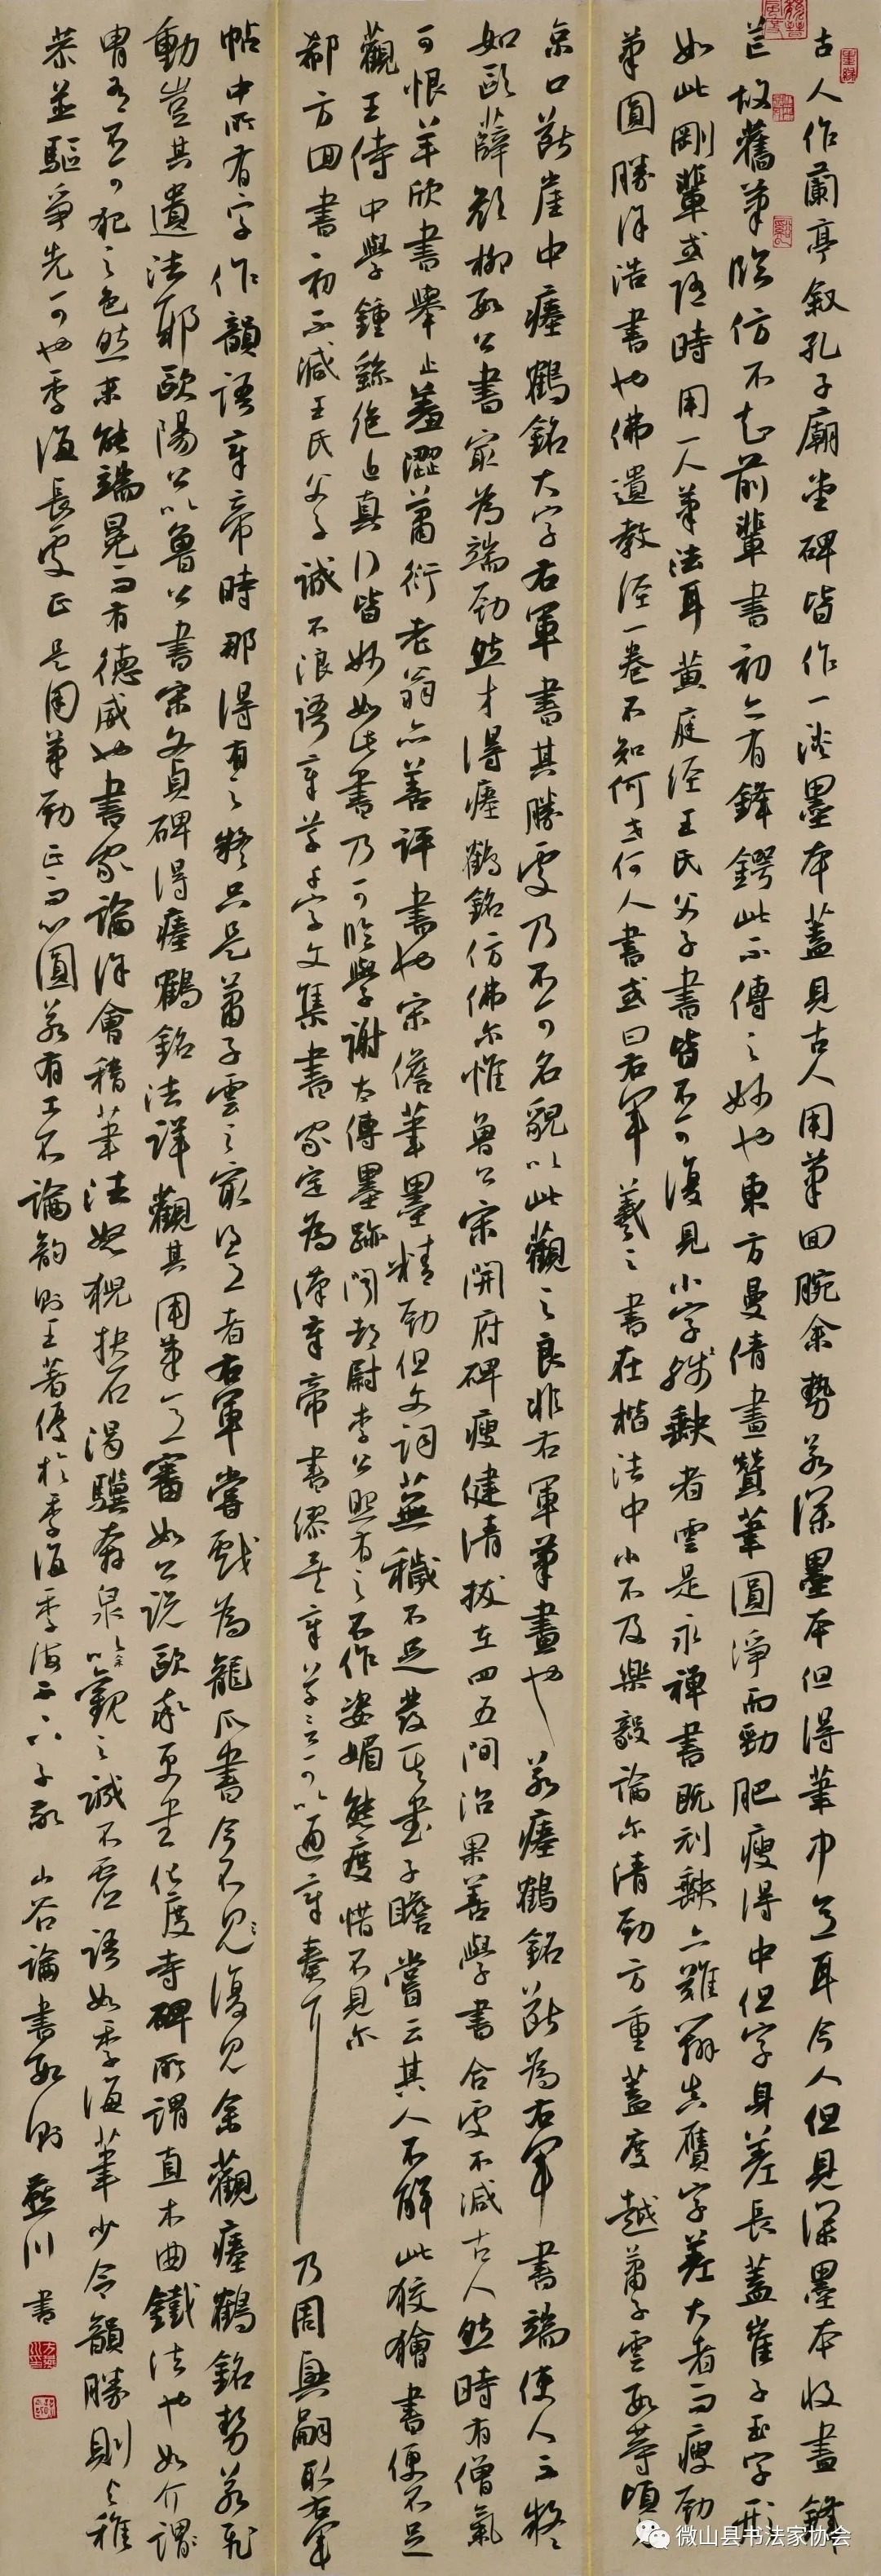 古人作蘭亭敘孔子廟堂碑皆作一淡墨本蓋見古人用筆回腕余勢若深墨本但得筆中意耳今人但見深墨本收盡鋒
芒故舊筆臨仿不知前輩書初亦有鋒鍔此不傳之妙也東方曼倩畫贊筆圓淨而勁肥瘦得中但字身差長蓋崔子玉字形
如此剛輩或隨時用一人筆法耳黃庭經王氏父子書皆不可復見小字殘缺者雲是永禪書既刓缺亦難辨真贗字差大者而瘦勁
筆圓勝徐浩書也佛遺教經一卷不知何世何人書或曰右軍羲之書在楷法中小不及樂毅論爾清勁方重蓋度越蕭子雲數等頃見
京口斷崖中瘞鶴銘大字右軍書其勝處乃不可名貌以此觀之良非右軍筆畫也若瘞鶴銘斷為右軍書端使人不疑
如歐薛顏柳數公書最為端勁然才得瘞鶴銘仿佛爾惟魯公宋開府碑瘦健清拔在四五間沿果善學書合處不減古人然時有僧氣
可恨羊欣書舉止羞澀蕭衍老翁亦善評書也宋儋筆墨精勁但文詞蕪穢不足發其書子瞻嘗云其人不解此狡獪書便不足
觀王侍中學鍾繇絕近真行皆妙如此書乃可臨學謝太傅墨跡聞都尉李公照有之不作姿媚態度惜不見爾
郗方回書初不減王氏父子誠不浪語章草千字文集書家定為漢章帝書繆矣章草言可以通章奏耳乃周興嗣取右軍
帖中所有字作韻語章帝時那得有之疑只是蕭子雲之最得意者右軍嘗戲為龍爪書今不見復見余觀瘞鶴銘勢若飛
動豈其遺法耶歐陽公以魯公書宋文貞碑得瘞鶴銘法詳觀其用筆意審如公說歐率更書化度寺碑所謂直木曲鐵法也如介謂
胄有不可犯之色然未能端冕而有德威也書家論徐會稽筆法怒猊抉石渴驥奔泉以余觀之誠不虛語如季海筆少令韻勝則與稚
恭並驅爭先可也季海長處正是用筆勁正而心圓若有工不論韻則王著優於季海季海不下子敬山谷論書數則燕川書
微山县书法家协会